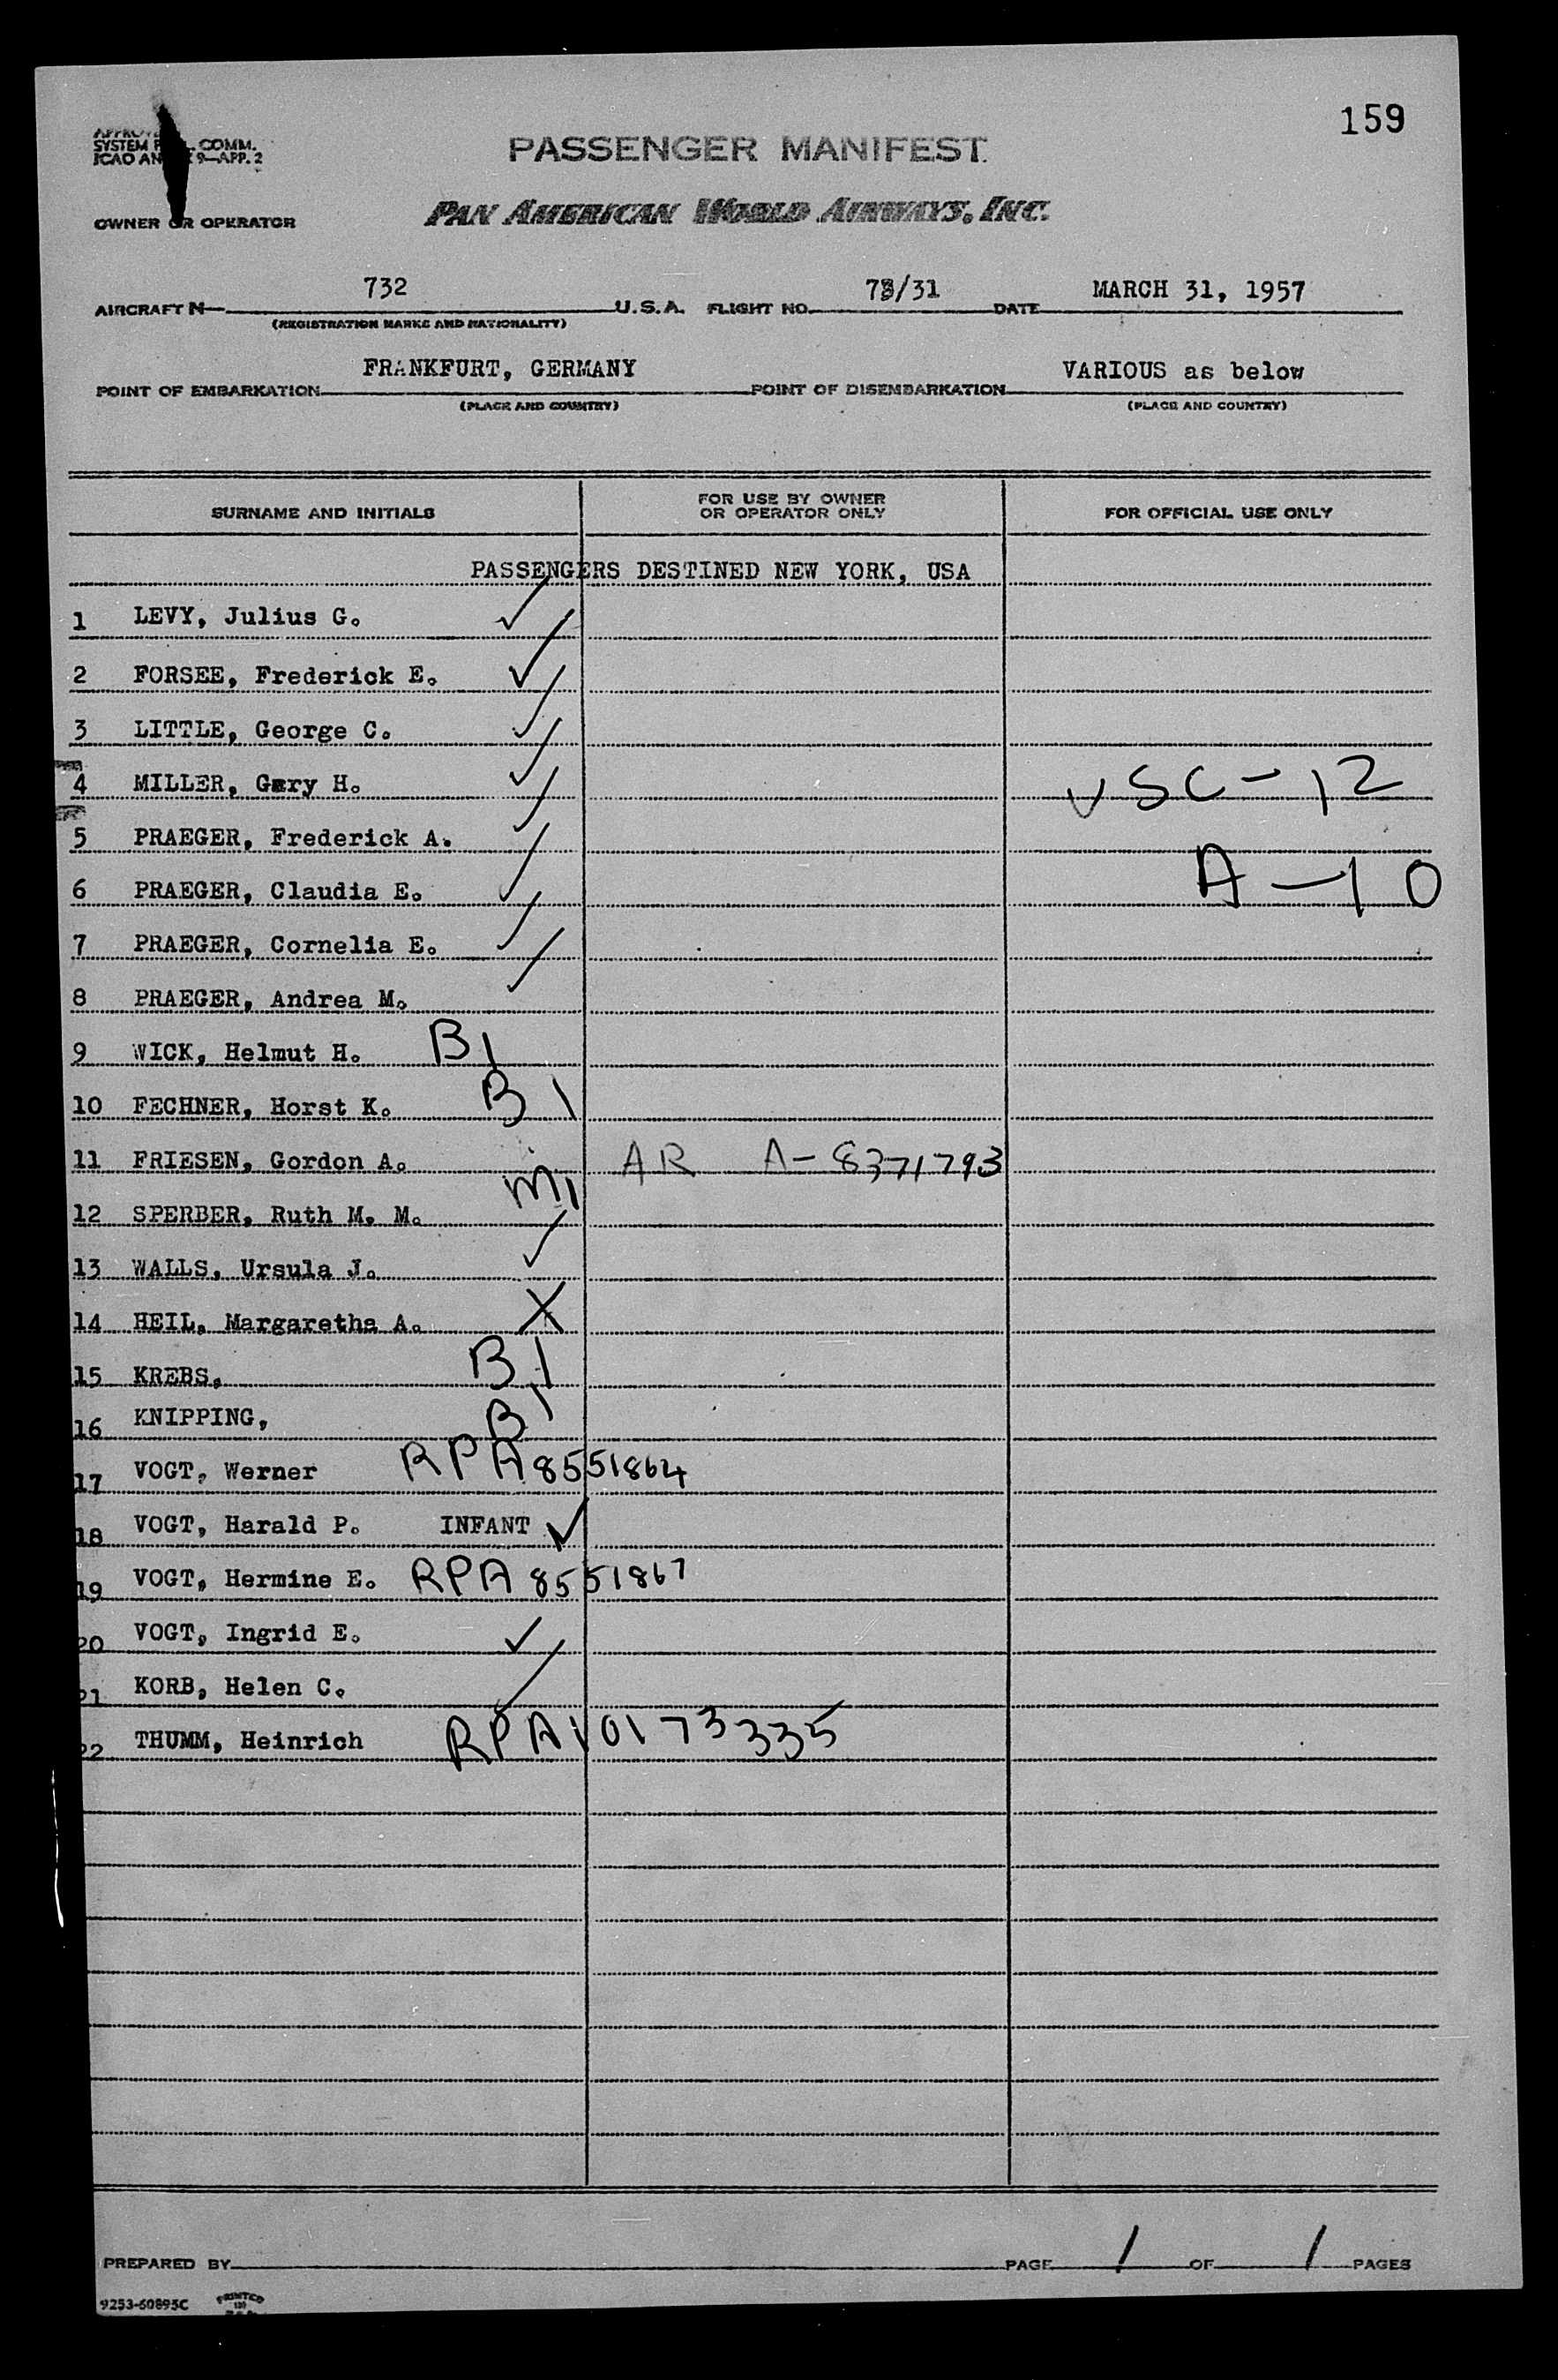 159
SYSTEM COMM.
ICAO 9—APP. 2
PASSENGER MANIFEST
OWNER OR OPERATOR
PAN AMERICAN WORLD AIRWAYS, INC.
AIRCRAFT N— 732 U.S.A. FLIGHT NO. /31 DATE MARCH 31, 1957
(REGISTRATION MARKS AND NATIONALITY)
POINT OF EMBARKATION FRANKFURT, GERMANY POINT OF DISEMBARKATION VARIOUS as below
(PLACE AND COUNTRY) (PLACE AND COUNTRY)
SURNAME AND INITIALS FOR USE BY OWNER OR OPERATOR ONLY FOR OFFICIAL USE ONLY
PASSENGERS DESTINED NEW YORK, USA
1 LEVY, Julius G. ✓
2 FORSEE, Frederick E. ✓
3 LITTLE, George C. ✓
4 MILLER, Gary H. ✓ VSC-12
5 PRAEGER, Frederick A. ✓
6 PRAEGER, Claudia E. ✓ A-10
7 PRAEGER, Cornelia E. ✓
8 PRAEGER, Andrea M. ✓
9 WICK, Helmut H. B1
10 FECHNER, Horst K. B1
11 FRIESEN, Gordon A. AR A-8371793
12 SPERBER, Ruth M. M. M1
13 WALLS, Ursula J. ✓
14 HEIL, Margaretha A. X
15 KREBS, B1
16 KNIPPING, B1
17 VOGT, Werner RPA 8551864
18 VOGT, Harald P. INFANT ✓
19 VOGT, Hermine E. RPA 8551867
20 VOGT, Ingrid E. ✓
21 KORB, Helen C. ✓
22 THUMM, Heinrich RPA 10173335
PREPARED BY PAGE 1 OF 1 PAGES
9253-60895C PRINTED